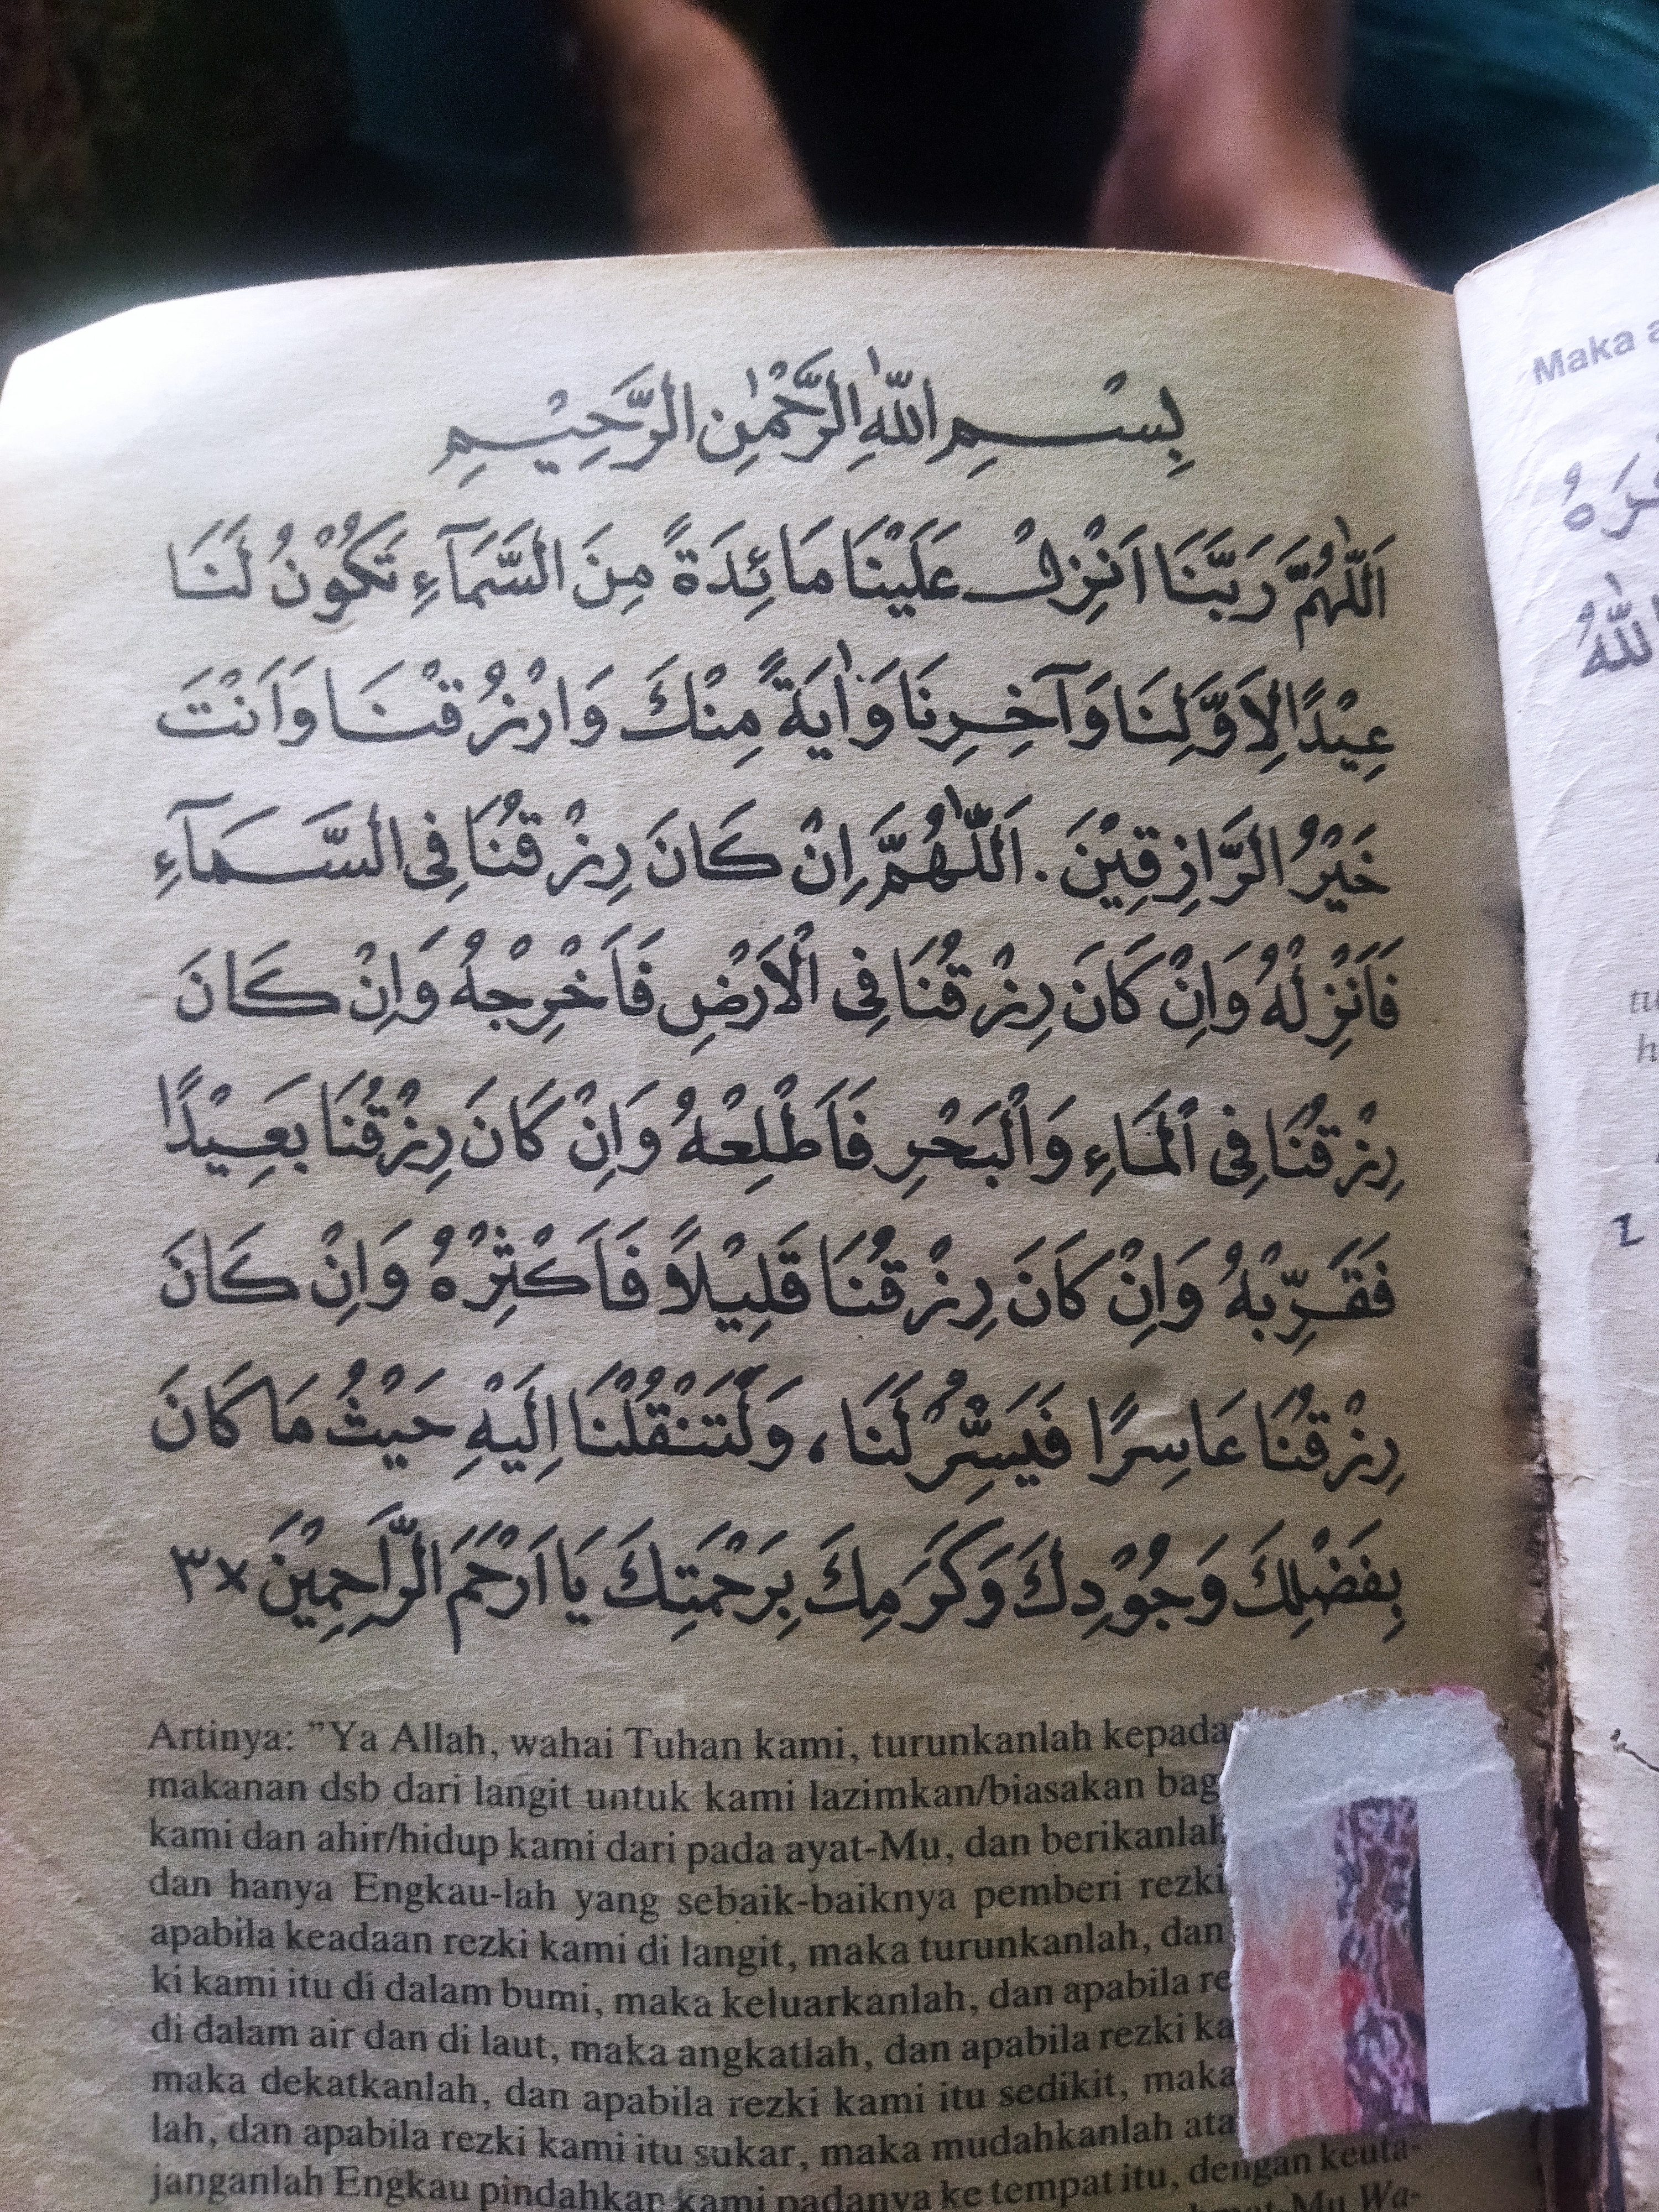 بِسْـــمِ اللّٰهِ الرَّحْمٰنِ الرَّحِيْـمِ
اَللّٰهُمَّ رَبَّنَا اَنْزِلْ عَلَيْنَا مَائِدَةً مِنَ السَّمَآءِ تَكُوْنُ لَنَا
عِيْدًا لِاَوَّلِنَا وَآخِرِنَا وَاٰيَةً مِنْكَ وَارْزُقْنَا وَاَنْتَ
خَيْرُ الرَّازِقِيْنَ . اَللّٰهُمَّ اِنْ كَانَ رِزْقُنَا فِى السَّمَآءِ
فَاَنْزِلْهُ وَاِنْ كَانَ رِزْقُنَا فِى الْاَرْضِ فَاَخْرِجْهُ وَاِنْ كَانَ
رِزْقُنَا فِى الْمَاءِ وَالْبَحْرِ فَاَطْلِعْهُ وَاِنْ كَانَ رِزْقُنَا بَعِيْدًا
فَقَرِّبْهُ وَاِنْ كَانَ رِزْقُنَا قَلِيْلاً فَاَكْثِرْهُ وَاِنْ كَانَ
رِزْقُنَا عَاسِرًا فَيَسِّرْ لَنَا ، وَلَتَنْقُلْنَا اِلَيْهِ حَيْثُ مَا كَانَ
بِفَضْلِكَ وَجُوْدِكَ وَكَرَمِكَ بِرَحْمَتِكَ يَا اَرْحَمَ الرَّاحِمِيْنَ ×٣
Artinya: "Ya Allah, wahai Tuhan kami, turunkanlah kepada
makanan dsb dari langit untuk kami lazimkan/biasakan bag
kami dan ahir/hidup kami dari pada ayat-Mu, dan berikanlah
dan hanya Engkau-lah yang sebaik-baiknya pemberi rezki
apabila keadaan rezki kami di langit, maka turunkanlah, dan
ki kami itu di dalam bumi, maka keluarkanlah, dan apabila re
di dalam air dan di laut, maka angkatlah, dan apabila rezki ka
maka dekatkanlah, dan apabila rezki kami itu sedikit, maka
lah, dan apabila rezki kami itu sukar, maka mudahkanlah ata
janganlah Engkau pindahkan kami padanya ke tempat itu, dengan keuta-
Mu Wa-
Maka a